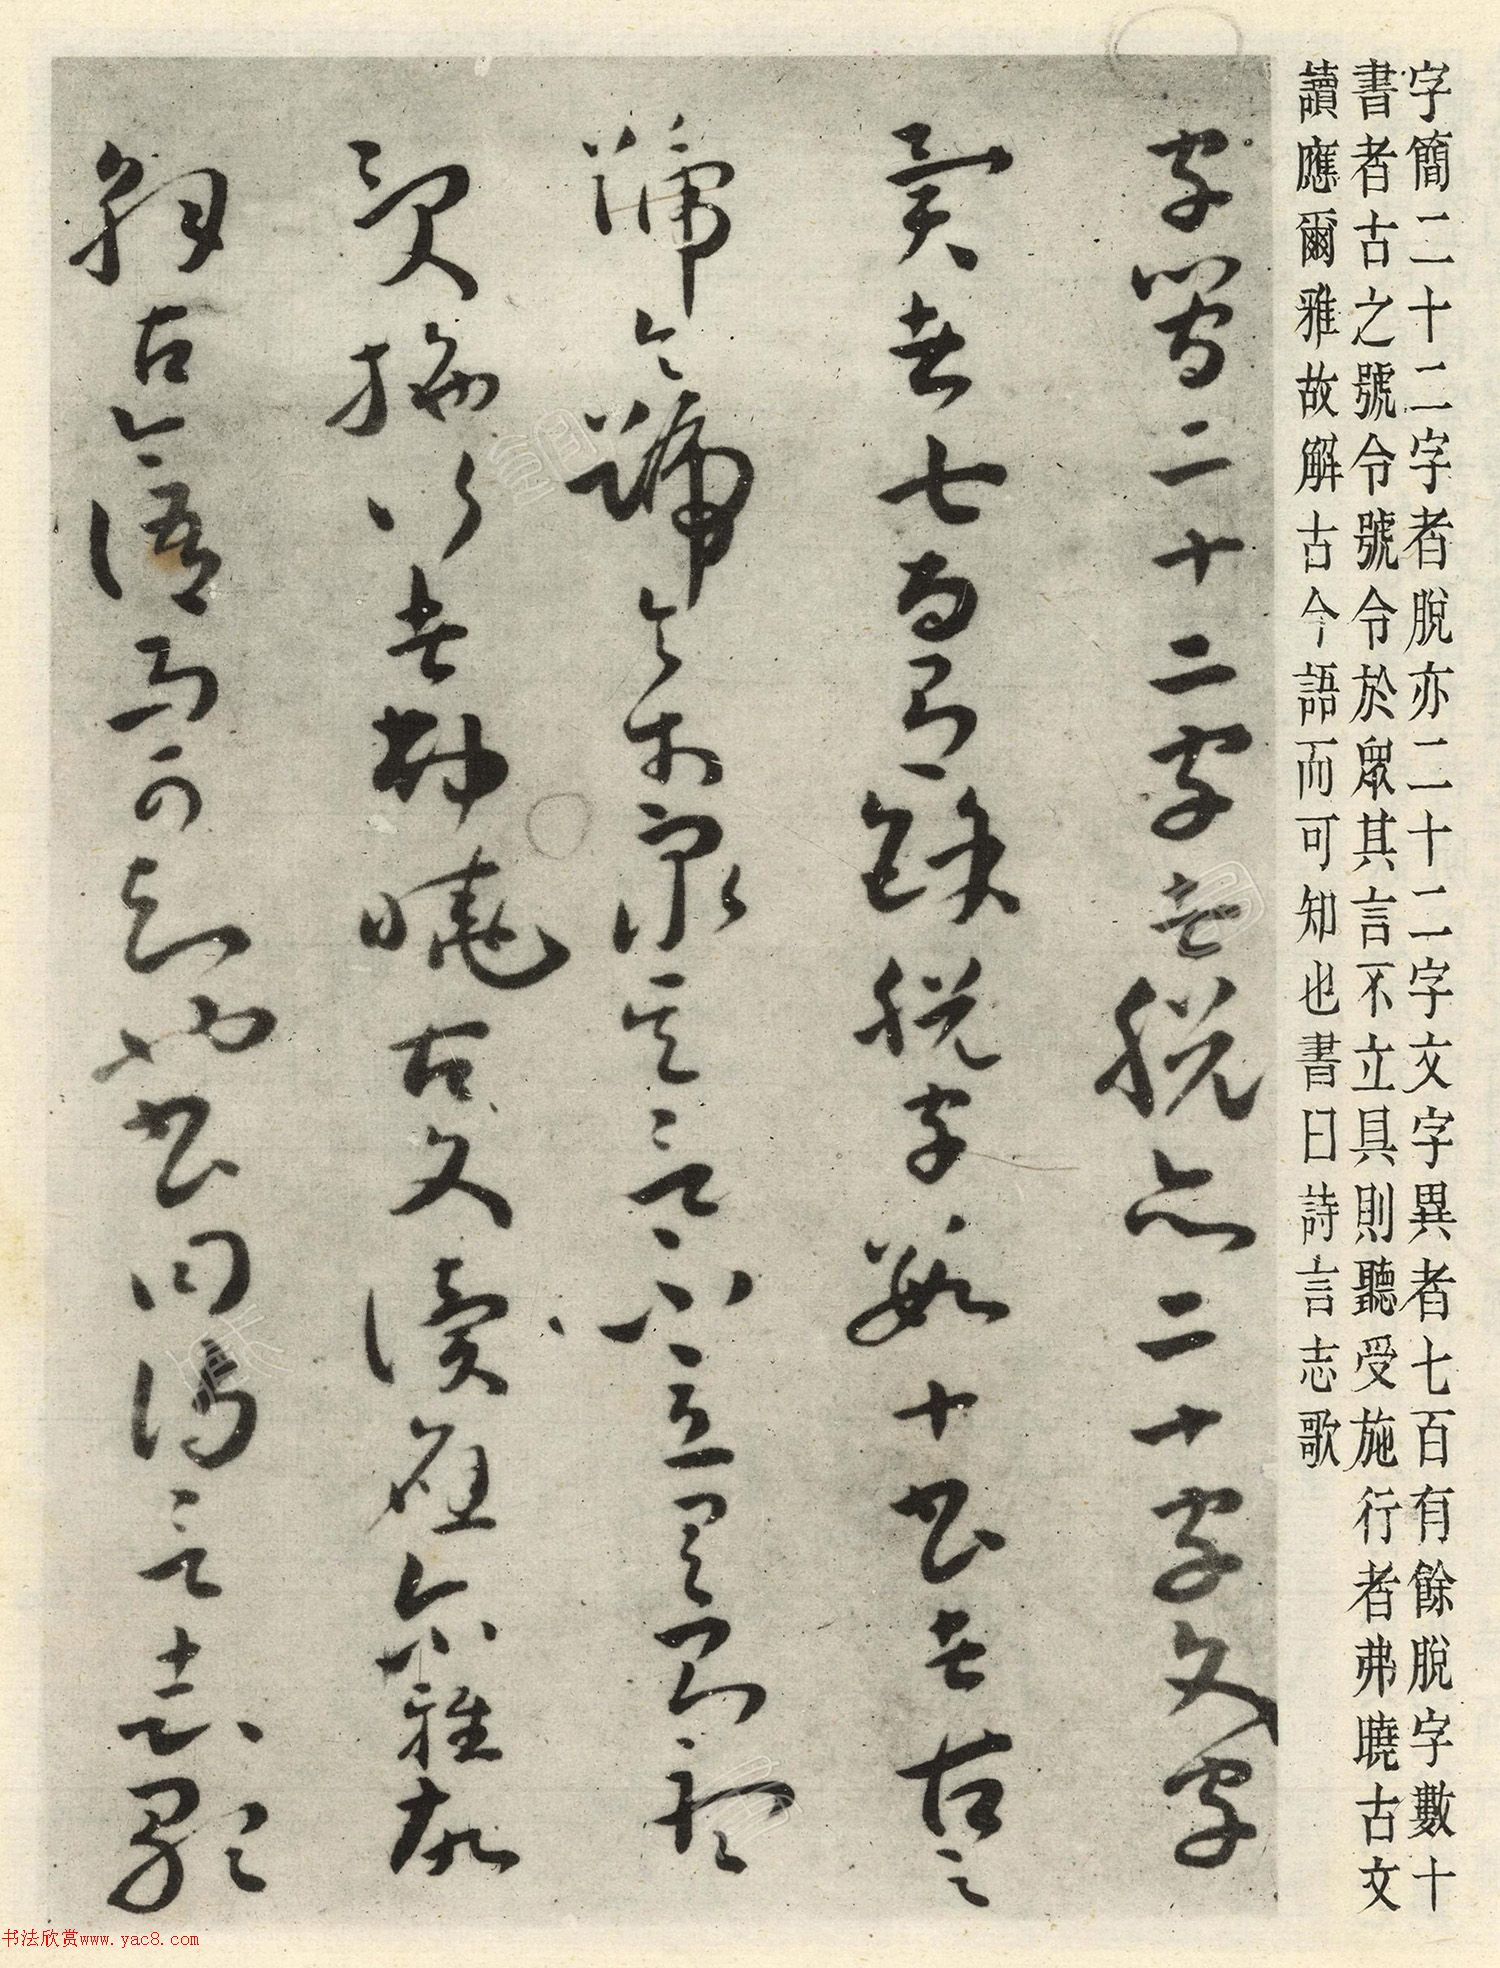 字簡二十二字者脫亦二十二字文字異者七百有餘脫字數十
書者古之號令號令於眾其言不立具則聽受施行者弗曉古文
讀應爾雅故解古今語而可知也書曰詩言志歌
字簡二十二字者脫亦二十字文字
異者七百有餘脫字數十書者古之
號令號令於眾其言不立具則聽
受施行者弗曉古文讀應爾雅故
解古今語而可知也書曰詩言志歌
书法欣赏www.yac8.com